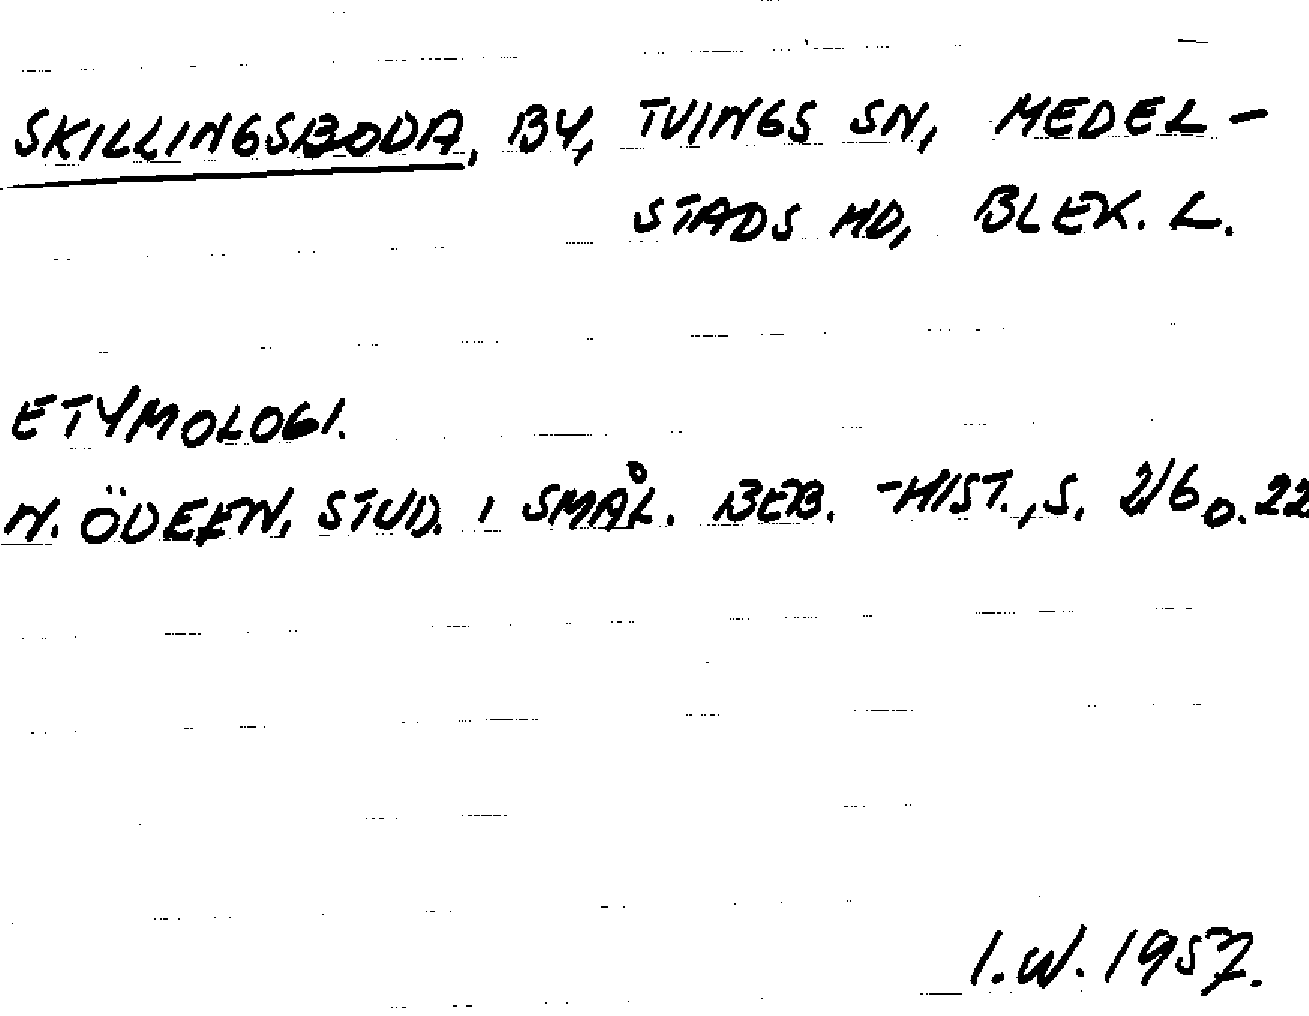 SKILLINGSBODA, BY, TVINGS SN, MEDEL-
STADS HD, BLEK. L.
ETYMOLOGI.
N. ÖDEEN, STUD. I SMÅL. BEB.-HIST., S. 216 o. 22
I.W. 1957.